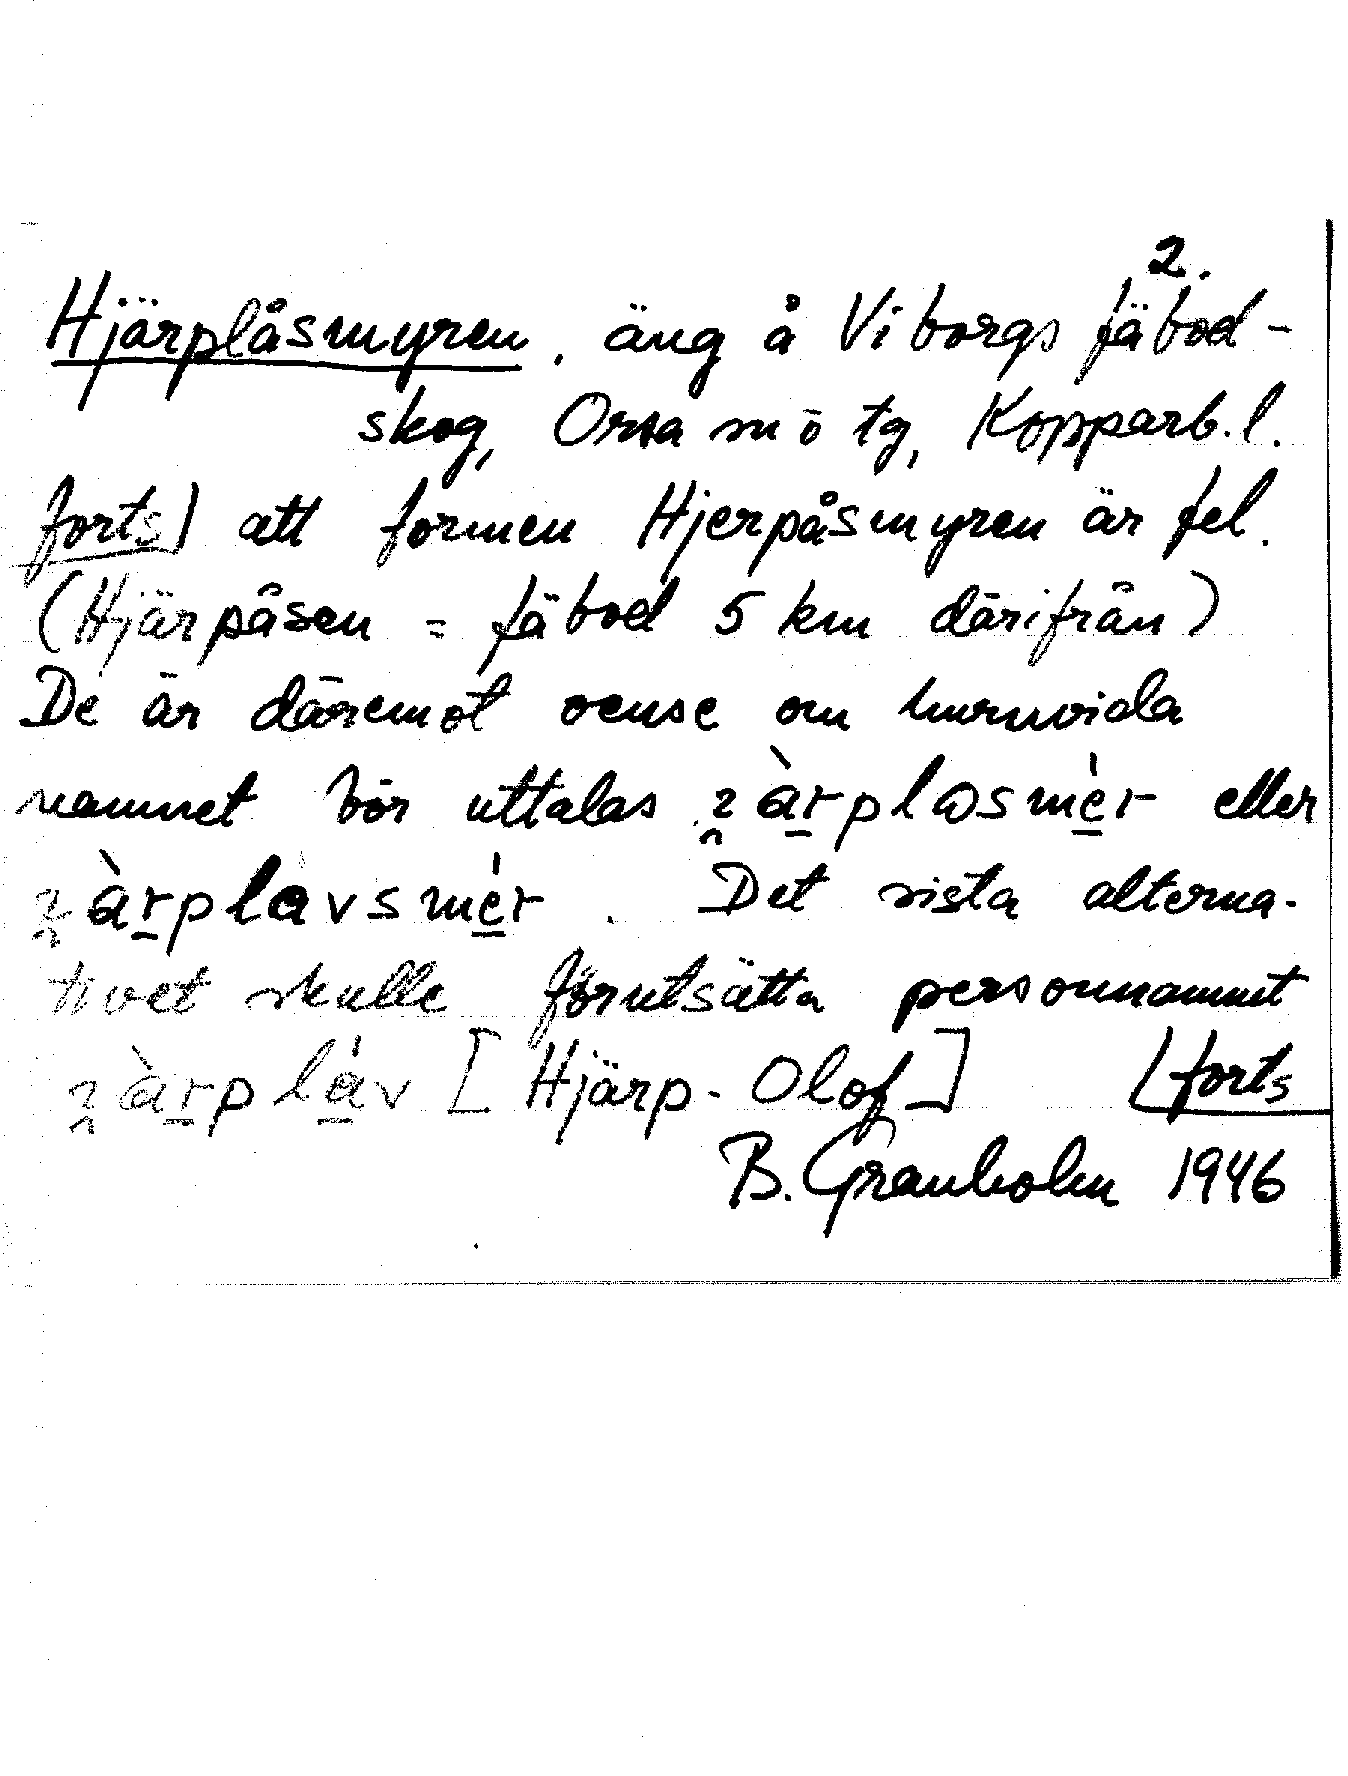 2.
Hjärplåsmyren, äng å Viborgs fäbod-
skog, Orsa sn ö tg, Kopparb. l.
forts) att formen Hjerpåsmyren är fel.
(Hjärpåsen = fäbod 5 km därifrån)
De är däremot oense om huruvida
namnet bör uttalas eller
. Det sista alterna-
tivet skulle förutsätta personnamnet
[Hjärp-Olof] [forts
B. Granholm 1946